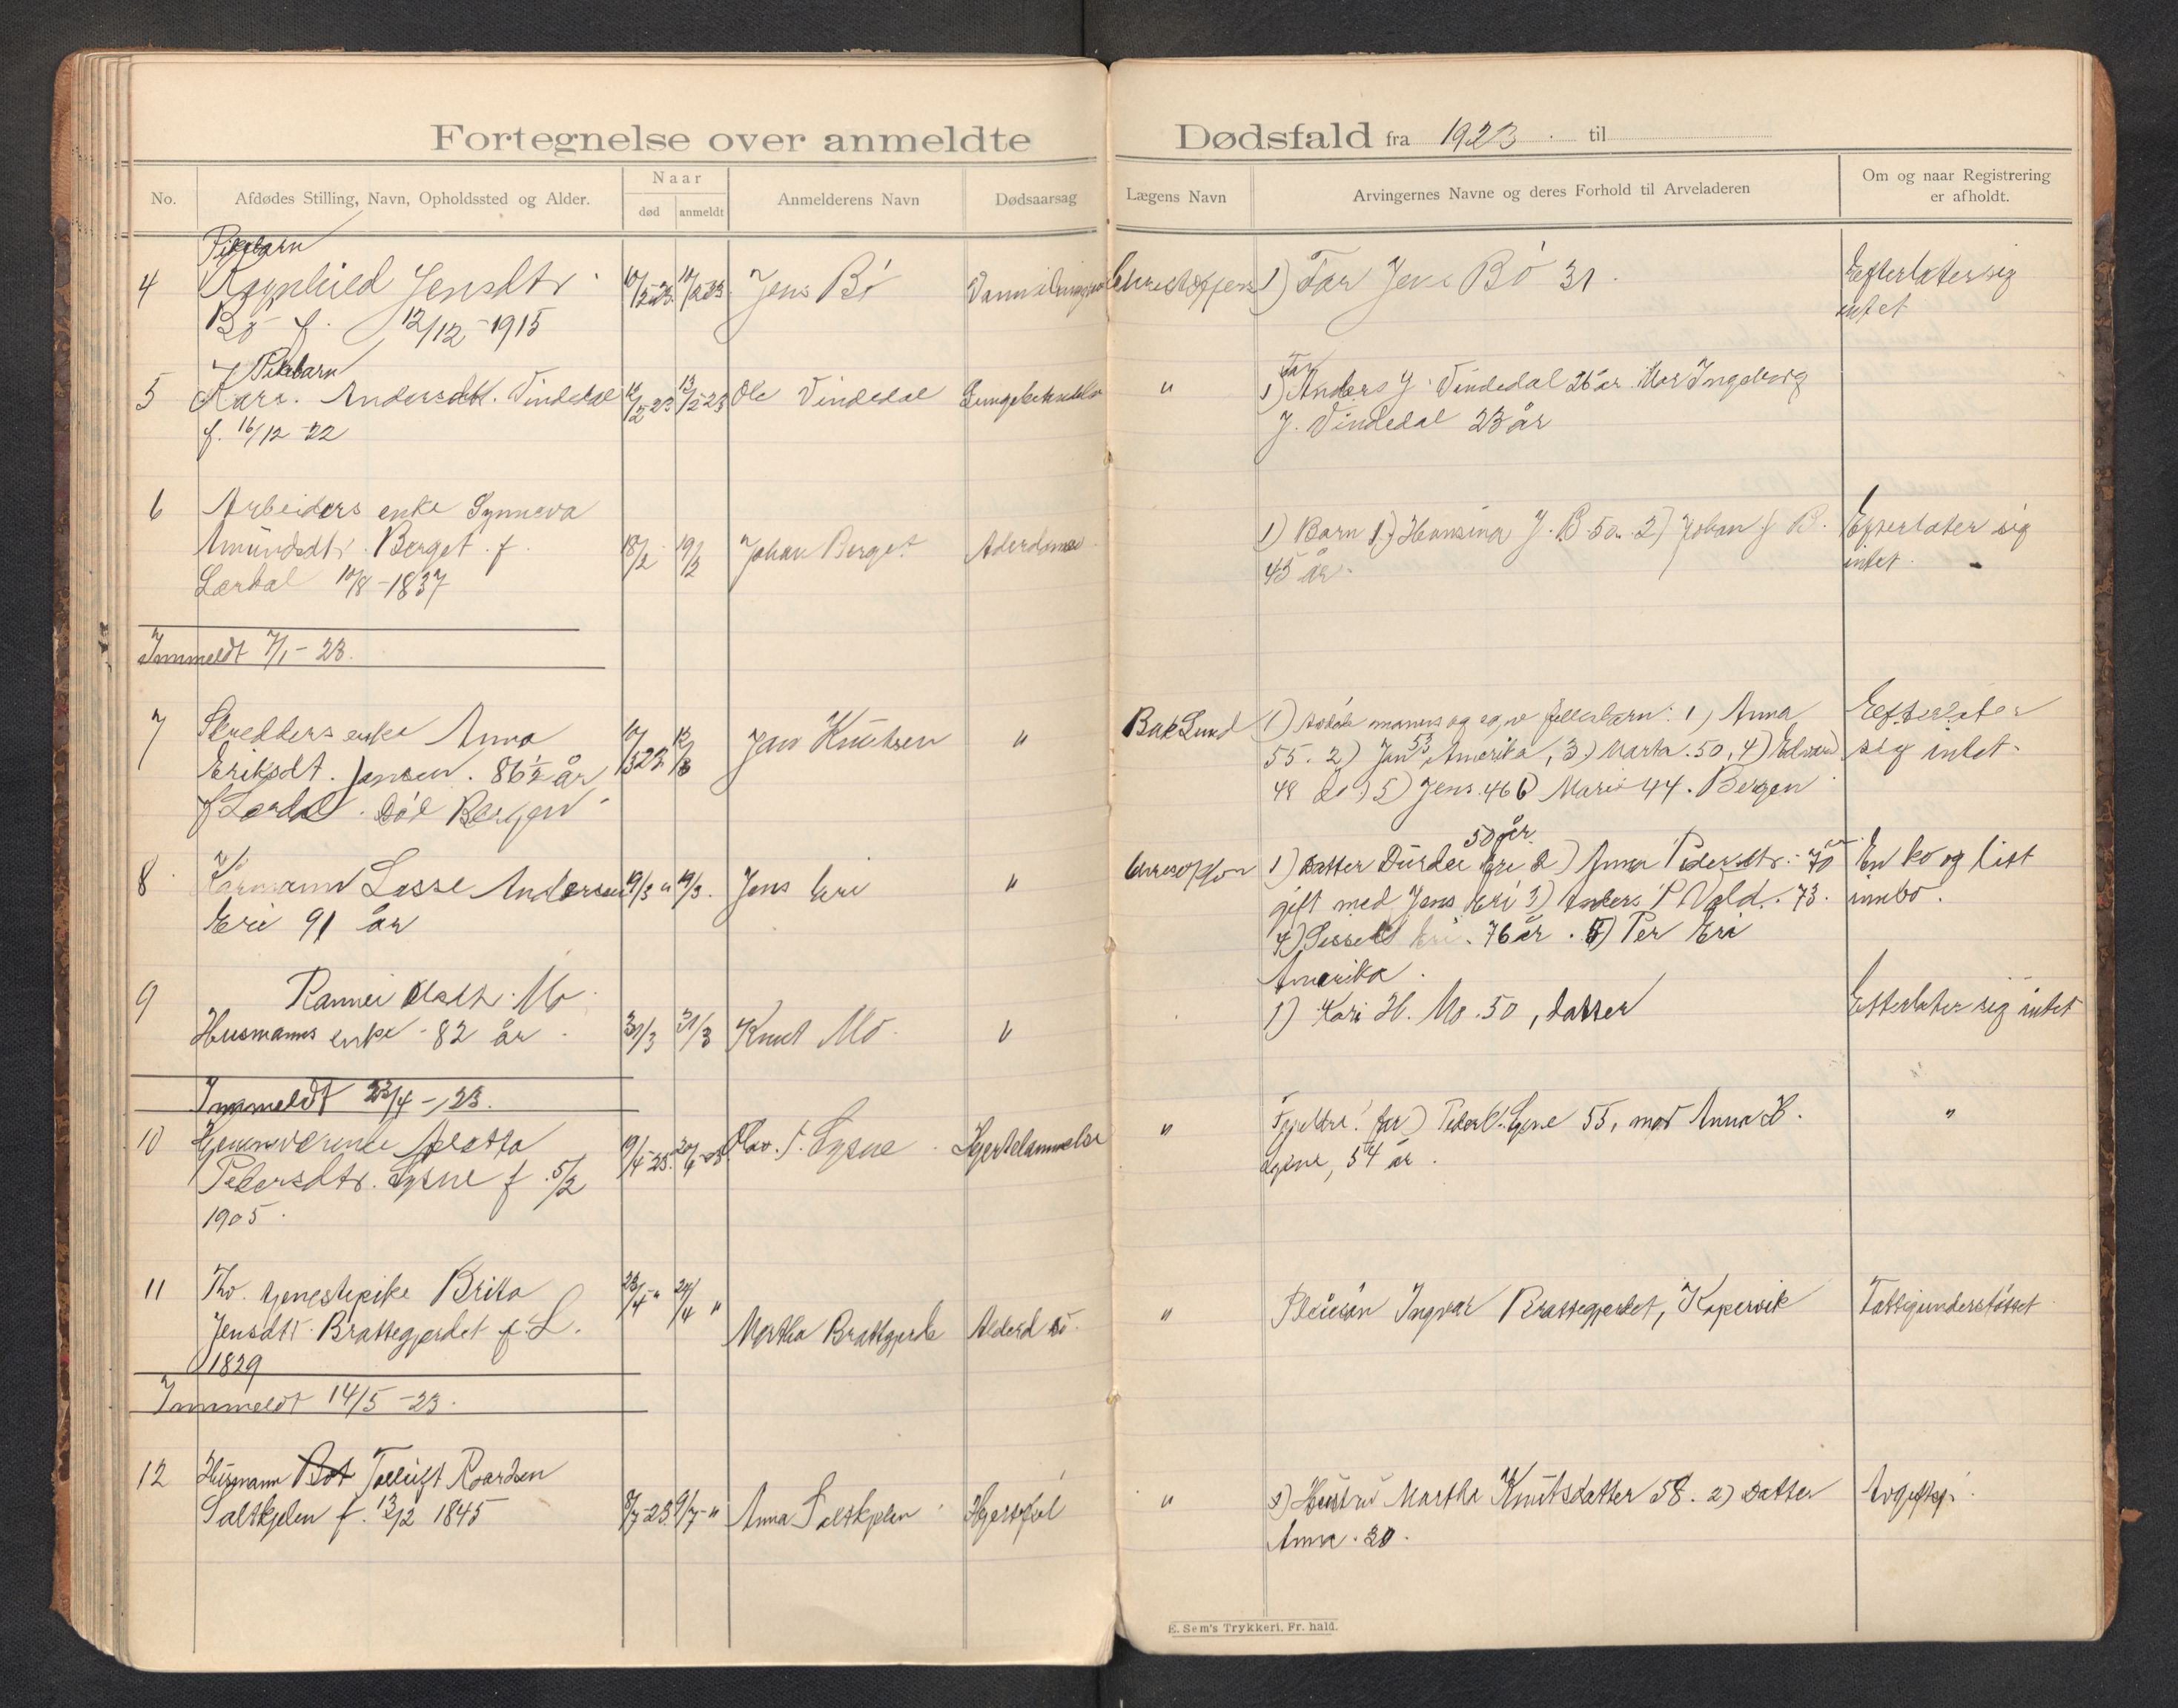 Fortegnelse over anmeldte Dødsfald fra 1923 til
No.
Afdødes Stilling, Navn, Opholdssted og Alder.
Naar
død
anmeldt
Anmelderens Navn
Dødsaarsag
Lægens Navn
Arvingernes Navne og deres Forhold til Arveladeren
Om og naar Registrering
er afholdt.
Pikebarn
4 Jensdtr Jens Bø 1) Far Jens Bø 31 Efterlater sig
Bö f. 12/12-1915 intet
Pikebarn
5 Kari Andersdtr. Vindedal 12/2-23 13/2-23 Ole Vindedal Lungebetendelse "
f. 16/12-22
Far
1) Anders J. Vindedal 26 år Mor Ingeborg
J. Vindedal 23 år
6 Arbeiders enke Synneva
Amundsdtr. Berget f. 18/2 19/2 Johan Berget
Lærdal 10/8-1837
1) Barn 1) Hansina J. B. 50. 2) Johan J. B.
45 år.
Efterlater sig
intet.
Innmeldt 7/1-23.
7 Skredders enke Anna
Eriksdt. Jensen. 86 1/2 år Jan Knutsen "
f Lærdal. Död Bergen
Bak Lund
1) Avdøde manns og egne fellesbarn: 1) Anna
55. 2) Jan 53 Amerika, 3) Marta. 50, 4) Edvard
48 år 5) Jens. 46 6) Marie 44. Bergen
Efterlater
sig intet.
8 Kårmann Lasse Andersen 19/3 " 19/3. Jens Eri "
Eri 91 år
50 år
1) Datter Durdei Eri 2) Anna Pedersdtr. 70 år
gift med Jens Eri 3) Anders P Vold. 73.
4) Sissel Eri. 76 år. 5) Per Eri
Amerika.
En ko og litt
innbo.
9 Rannei Olsdtr. Mo
Husmanns enke - 82 år. 30/3 31/3 Knut Mo. "
1) Kari H. Mo. 50, datter
Efterlater sig intet
Innmeldt 23/4-23.
10 Hjemmeværende
Pedersdtr. Lysne f. 5/2
1905.
Olav. P. Lysne Hjertelammelse "
far) Peder Lysne 55, mor Anna H.
Lysne, 54 år.
"
11 Fhv. tjenestepike Britta 23/4 " 24/4 "
Jensdtr. Brattegjerdet f. L. Martha Brattgjerde Alderd "
1829
Ingvar Brattegjerdet, Kopervik Fattigunderstöttet
Innmeldt 14/5-23.
12 Husmann Tolleif Roardsen
Saltkjelen f. 12/2 1845 8/7-23 9/7-" Anna Saltkjelen Hjertefeil "
1) Hustru Martha Knutsdatter 58. 2) Datter
Anna. 20.
E. Sem's Trykkeri. Fr. hald.